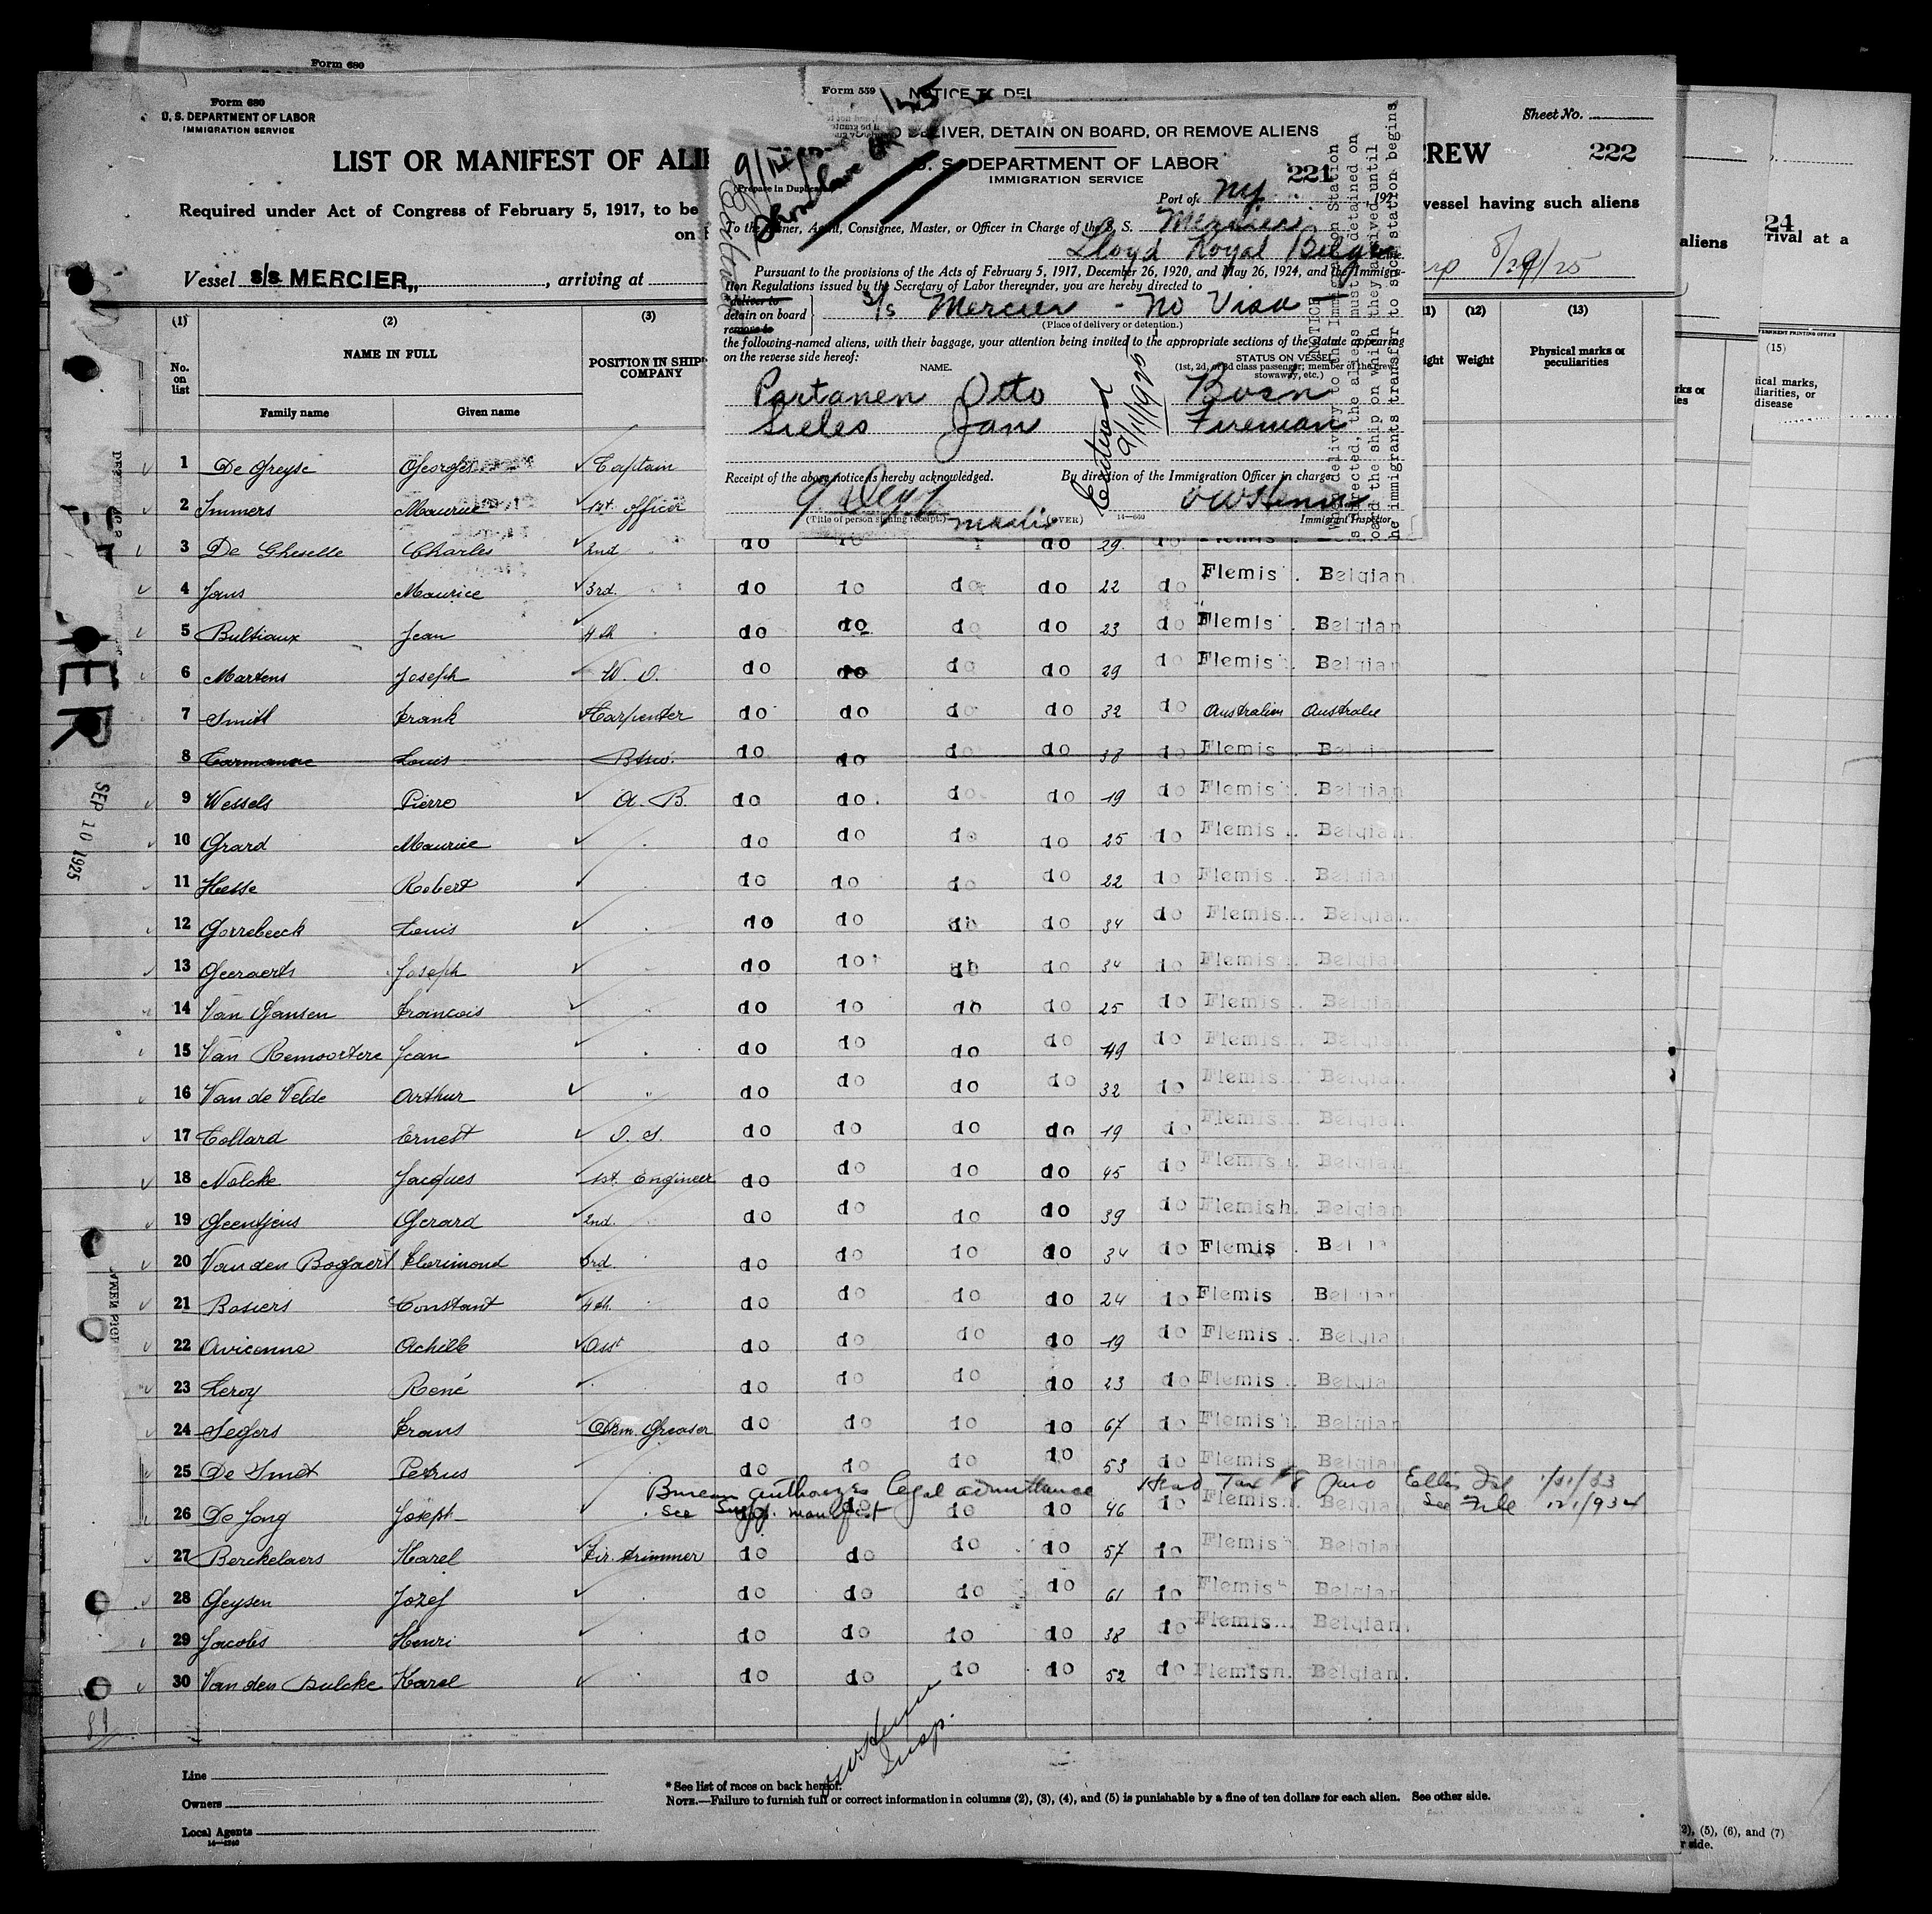 Form 680
Form 680
U. S. DEPARTMENT OF LABOR
IMMIGRATION SERVICE
Sheet No.
LIST OR MANIFEST OF ALIE
CREW 222
Required under Act of Congress of February 5, 1917, to be
vessel having such aliens
on
Vessel s/s MERCIER,, , arriving at
8/29/25
Form 559 NOTICE TO DEL
DELIVER, DETAIN ON BOARD, OR REMOVE ALIENS
U. S. DEPARTMENT OF LABOR
IMMIGRATION SERVICE
221
Prepare in Duplicate
Port of NY. 192
To the Owner, Agent, Consignee, Master, or Officer in Charge of the S. S. Mercier
Lloyd Royal Belge
Pursuant to the provisions of the Acts of February 5, 1917, December 26, 1920, and May 26, 1924, and the Immigra-
tion Regulations issued by the Secretary of Labor thereunder, you are hereby directed to
deliver to
detain on board
remove to
S/s Mercier - No Visa
(Place of delivery or detention.)
the following-named aliens, with their baggage, your attention being invited to the appropriate sections of the statute appearing
on the reverse side hereof:
NAME.
STATUS ON VESSEL
(1st, 2d, or 3d class passenger; member of the crew, stowaway, etc.)
Partanen Otto Bosn
Sieles Jan Fireman
9/11/1925
Receipt of the above notice is hereby acknowledged. By direction of the Immigration Officer in charge.
(Title of person signing receipt.) (OVER) 14—660 Immigrant Inspector
NOTICE
When delivery to the Immigration Station
is directed, the aliens must be detained on
board the ship on which they arrived until
the immigrants transfer to such station begins
(1) (2) (3) (11) (12) (13)
No. on list
NAME IN FULL
POSITION IN SHIP'S COMPANY
Weight
Physical marks or peculiarities
Family name Given name
1 De Greyse Georges Captain
2 Immers Maurice 1st. officer
3 De Gheselle Charles 2nd do do do 29 do Flemish
4 Jans Maurice 3rd. do do do do 22 do Flemis . Belgian.
5 Bultiaux Jean 4th do do do do 23 do Flemis . Belgian
6 Martens Joseph W. O. do do do do 29 do Flemis . Belgian
7 Smitt Frank Carpenter do do do do 32 do Australien Australie
8 Louis Btsw. do do do do 38 do Flemis Be
9 Wessels Pierre A. B. do do. do do 19 do Flemis Belgian
10 Grard Maurice " do do do do 25 do Flemis . Belgian.
11 Hesse Robert do do do do 22 do Flemis . Belgian
12 Gorrebeeck Louis " do do do do 34 do Flemis . Belgian.
13 Geeraerts Joseph " do do do do 34 do Flemis . Belgian
14 Van Gansen Francois " do do do do 25 do Flemis . Belgian
15 Van Remoortere Jean " do do do do 49 do Flemis . Belgian
16 Van de Velde Arthur " do do do do 32 do Flemis . Belgian
17 Collard Ernest O. S. do do do do 19 do Flemis . Belgian
18 Nolcke Jacques 1st. Engineer do do do do 45 do Flemis . Belgian
19 Geentjens Gerard 2nd. do do do do 39 do Flemish. Belgian
20 Van den Bogaert Florimond 3rd. do do do do 34 do Flemis . Belgian
21 Rosiers Constant 4th. do do do do 24 do Flemis Belgian
22 Avicenne Achille Asst do do do do 19 do Flemis . Belgian
23 Leroy René " do do do do 23 do Flemis . Belgian
24 Segers Frans Greaser do do do do 67 do Flemish. Belgian
25 De Smet Petrus do do do do 53 do Flemis Belgian
Bureau authorizes legal admittance Head Tax $8 Paid Ellis Isl 1/31/33
See Supp. manifest See File
26 De Jong Joseph do do do do 46 Flemis . Belgian
27 Berckelaers Karel Fir. trimmer do do do do 57 do Flemis . Belgian
28 Geysen Jozef " do do do do 61 do Flemis Belgian
29 Jacobs Henri " do do do do 38 do Flemis . Belgian.
30 Van den Bulcke Karel " do do do do 52 do Flemish. Belgian.
Insp.
SEP 10 1925
Line
Owners
Local Agents
14—1240
* See list of races on back hereof.
NOTE.—Failure to furnish full or correct information in columns (2), (3), (4), and (5) is punishable by a fine of ten dollars for each alien. See other side.
24
aliens
rival at a
(15)
(5), (6), and (7)
side.